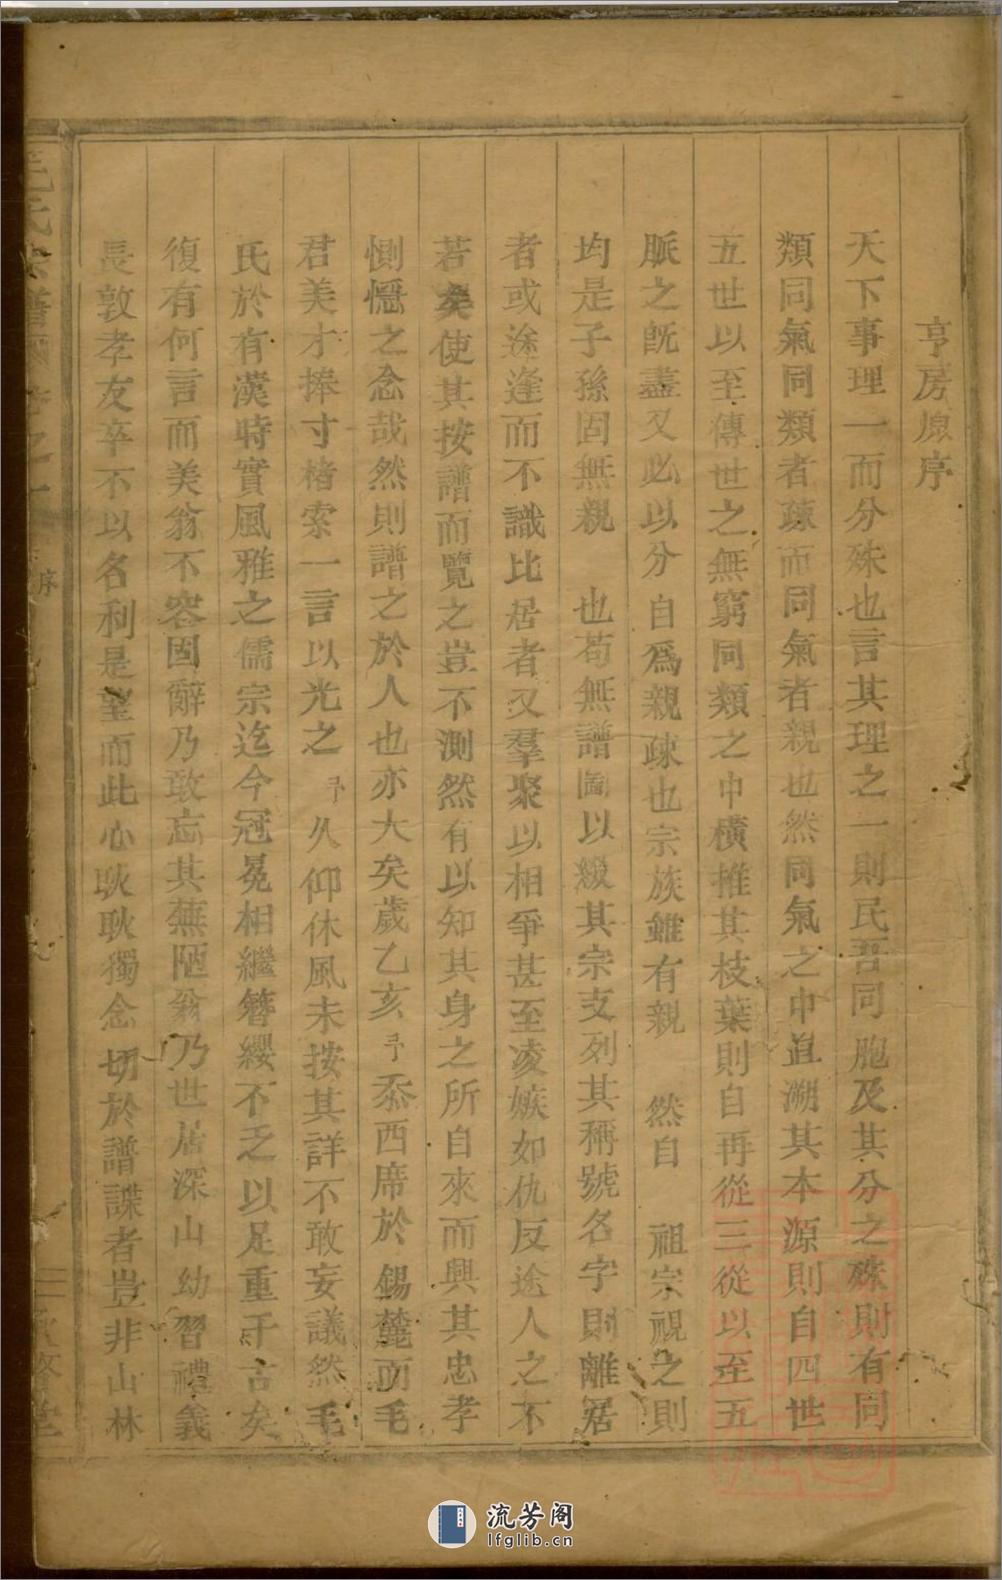 亨房原序
天下事理一而分殊也言其理之一則民吾同胞及其分之殊則有同
類同氣同類者疎而同氣者親也然同氣之中直溯其本源則自四世
五世以至傳世之無窮同類之中橫推其枝葉則自再從三從以至五
脈之旣盡又必以分自爲親疎也宗族雖有親 然自 祖宗視之則
均是子孫固無親 也苟無譜圖以綴其宗支列其稱號名字則離居
者或途逢而不識比居者又羣聚以相爭甚至凌嫉如仇反途人之不
若矣使其按譜而覽之豈不測然有以知其身之所自來而興其忠孝
惻隱之念哉然則譜之於人也亦大矣歲乙亥予忝西席於錫麓而毛
君美才捧寸楮索一言以光之予久仰休風未按其詳不敢妄議然毛
氏於有漢時實風雅之儒宗迄今冠冕相繼簪纓不乏以足重千古矣
復有何言而美翁不容固辭乃敢忘其蕪陋翁乃世居深山幼習禮義
長敦孝友卒不以名利是望而此心耿耿獨念切於譜諜者豈非山林
毛氏宗譜 卷之一 序
流芳阁
lfglib.cn